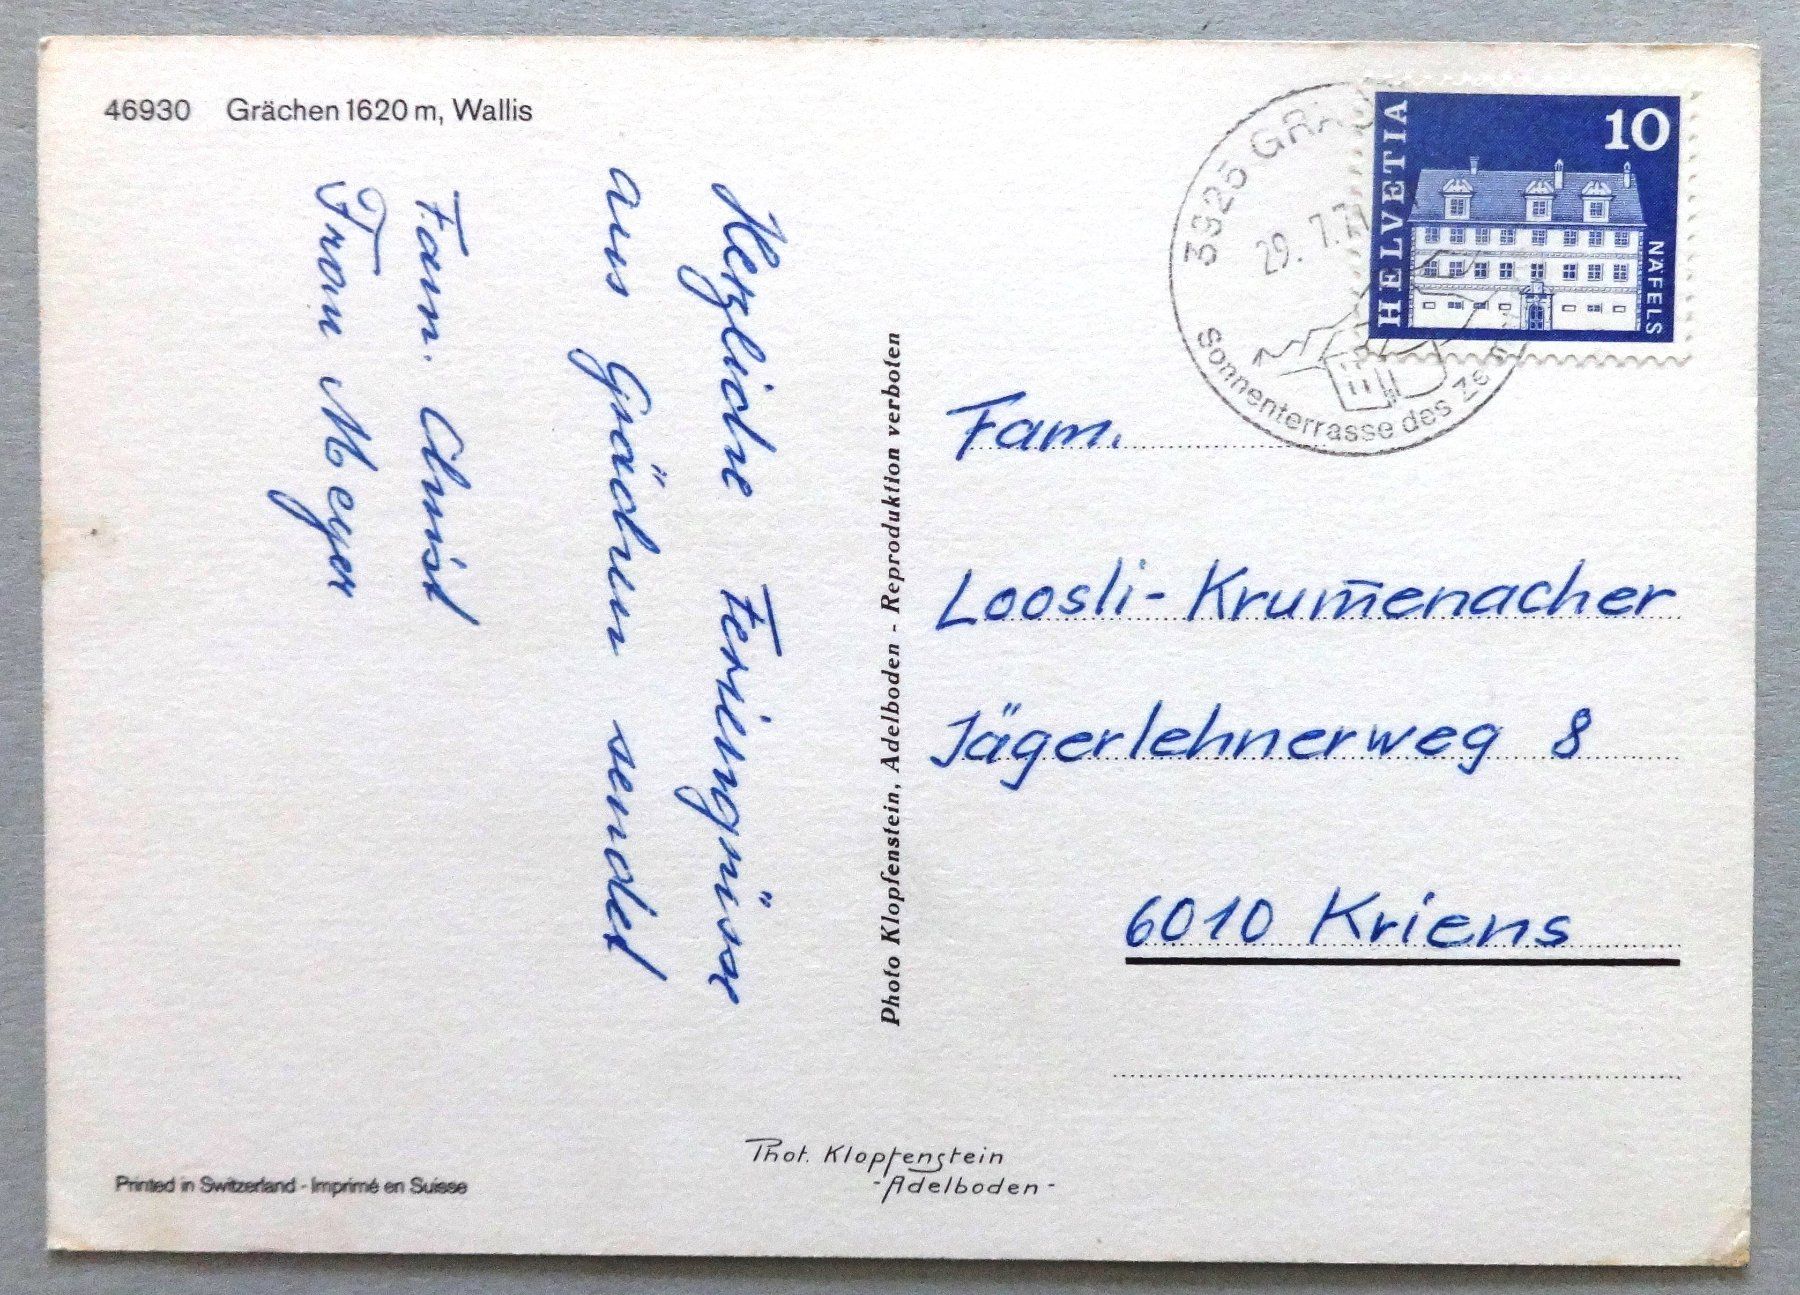 46930 Grächen 1620 m, Wallis
Herzliche Feriengrüsse
aus Grächen sendet
Fam. Christ
Frau Meyer
Photo Klopfenstein, Adelboden - Reproduktion verboten
3925 GRÄC
29. 7. 71
Sonnenterrasse des Ze
HELVETIA
10
NÄFELS
Fam.
Loosli-Krum̅enacher
Jägerlehnerweg 8
6010 Kriens
Phot. Klopfenstein
-Adelboden-
Printed in Switzerland - Imprimé en Suisse